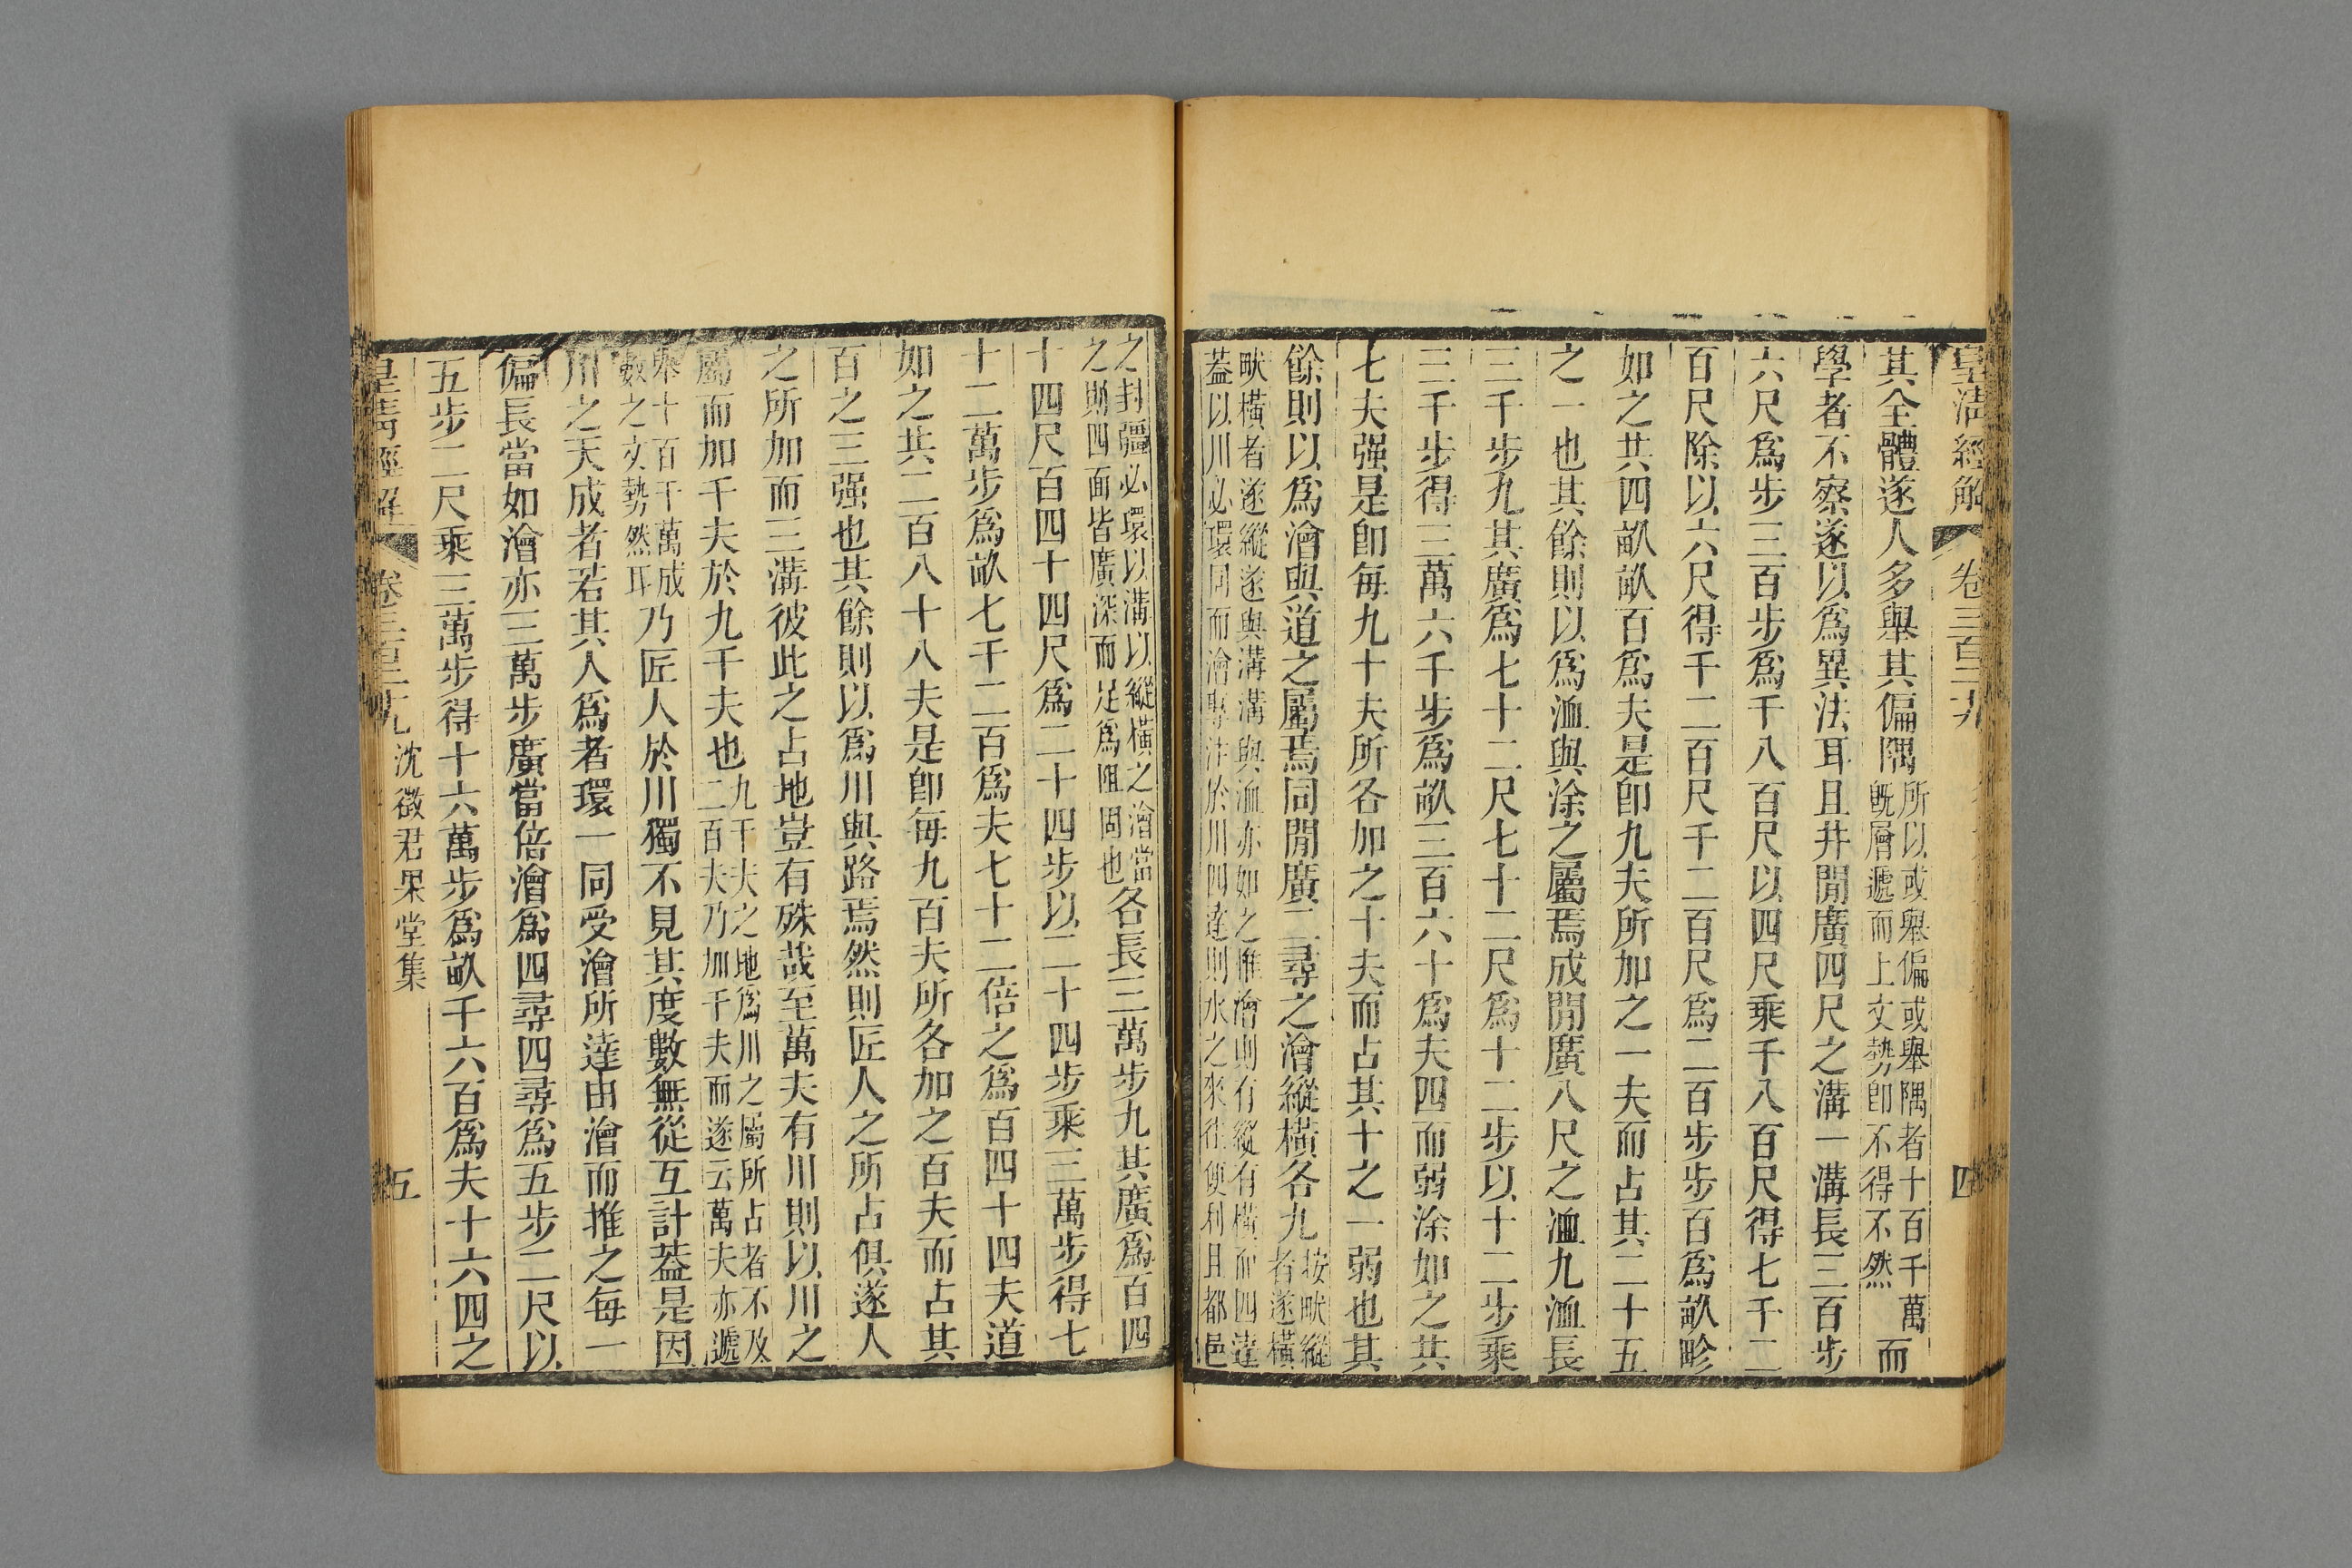 皇清經解 卷三百二十九 四
其全體遂人多舉其偏隅所以或舉偏或舉隅者十百千萬既層遞而上文勢卽不得不然而
學者不察遂以爲異法耳且井閒廣四尺之溝一溝長三百步
六尺爲步三百步爲千八百尺以四尺乘千八百尺得七千二
百尺除以六尺得千二百尺千二百尺爲二百步步百爲畝畛
如之共四畝畝百爲夫是卽九夫所加之一夫而占其二十五
之一也其餘則以爲洫與涂之屬焉成閒廣八尺之洫九洫長
三千步九其廣爲七十二尺七十二尺爲十二步以十二步乘
三千步得三萬六千步爲畝三百六十爲夫四而弱涂如之共
七夫强是卽每九十夫所各加之十夫而占其十之一弱也其
餘則以爲澮與道之屬焉同閒廣二尋之澮縱橫各九按畎縱者遂橫
畎橫者遂縱遂與溝溝與洫亦如之惟澮則有縱有橫而四達
蓋以川必環同而澮專注於川四達則水之來往便利且都邑
之封疆必環以溝以縱橫之澮當
之則四面皆廣深而足爲阻固也各長三萬步九其廣爲百四
十四尺百四十四尺爲二十四步以二十四步乘三萬步得七
十二萬步爲畝七千二百爲夫七十二倍之爲百四十四夫道
如之共二百八十八夫是卽每九百夫所各加之百夫而占其
百之三强也其餘則以爲川與路焉然則匠人之所占俱遂人
之所加而三溝彼此之占地豈有殊哉至萬夫有川則以川之
屬而加千夫於九千夫也九千夫之地爲川之屬所占者不及二百夫乃加千夫而遂云萬夫亦遞
舉十百千萬成數之文勢然耳乃匠人於川獨不見其度數無從互計蓋是因
川之天成者若其人爲者環一同受澮所達由澮而推之每一
偏長當如澮亦三萬步廣當倍澮爲四尋四尋爲五步二尺以
五步二尺乘三萬步得十六萬步爲畝千六百爲夫十六四之
皇清經解 卷三百二十九 沈徵君果堂集 五